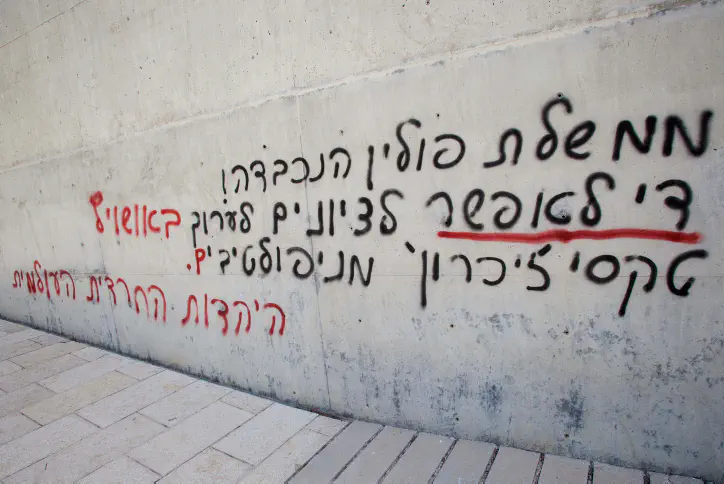 ממשלת פולין הנכבדה!
די לאפשר לציונים לערוך באושוויץ
טקסי 'זיכרון' מניפולטיבים.
היהדות החרדית העולמית